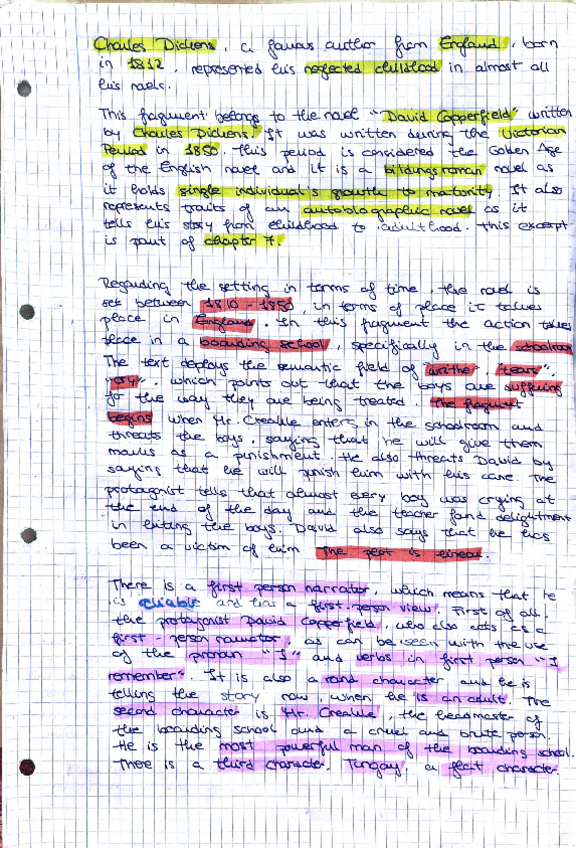 Charles Dickens, a famous author from England, born
in 1812, represented his neglected childhood in almost all
his novels.
This fragment belongs to the novel "David Copperfield" written
by Charles Dickens. It was written during the Victorian
Period in 1850. This period is considered the Golden Age
of the English novel and it is a bildungsroman novel as
it holds single individual's growth to maturity. It also
represents traits of an autobiographic novel as it
tells his story from childhood to adulthood. This excerpt
is part of chapter 7.
Regarding the setting in terms of time, the novel is
set between 1810-1850, in terms of place it takes
place in England. In this fragment the action takes
place in a boarding school, specifically in the schoolroom
The text deploys the semantic field of "writhe", "tears",
"cry", which points out that the boys are suffering
for the way they are being treated. The fragment
begins when Mr. Creakle enters in the schoolroom and
threats the boys, saying that he will give them
marks as a punishment. He also threats David by
saying that he will punish him with his cane. The
protagonist tells that almost every boy was crying at
the end of the day and the teacher found delightment
in hitting the boys. David also says that he has
been a victim of him. The plot is linear.
There is a first person narrator, which means that he
is reliable and has a first-person view. First of all,
the protagonist David Copperfield, who also acts as a
first-person narrator, as can be seen with the use
of the pronoun "I" and verbs in first person "I
remember". It is also a round character and he is
telling the story now, when he is an adult. The
second character is Mr. Creakle, the headmaster of
the boarding school and a cruel and brute person.
He is the most powerful man of the boarding school.
There is a third character, Tungay, a flat character.